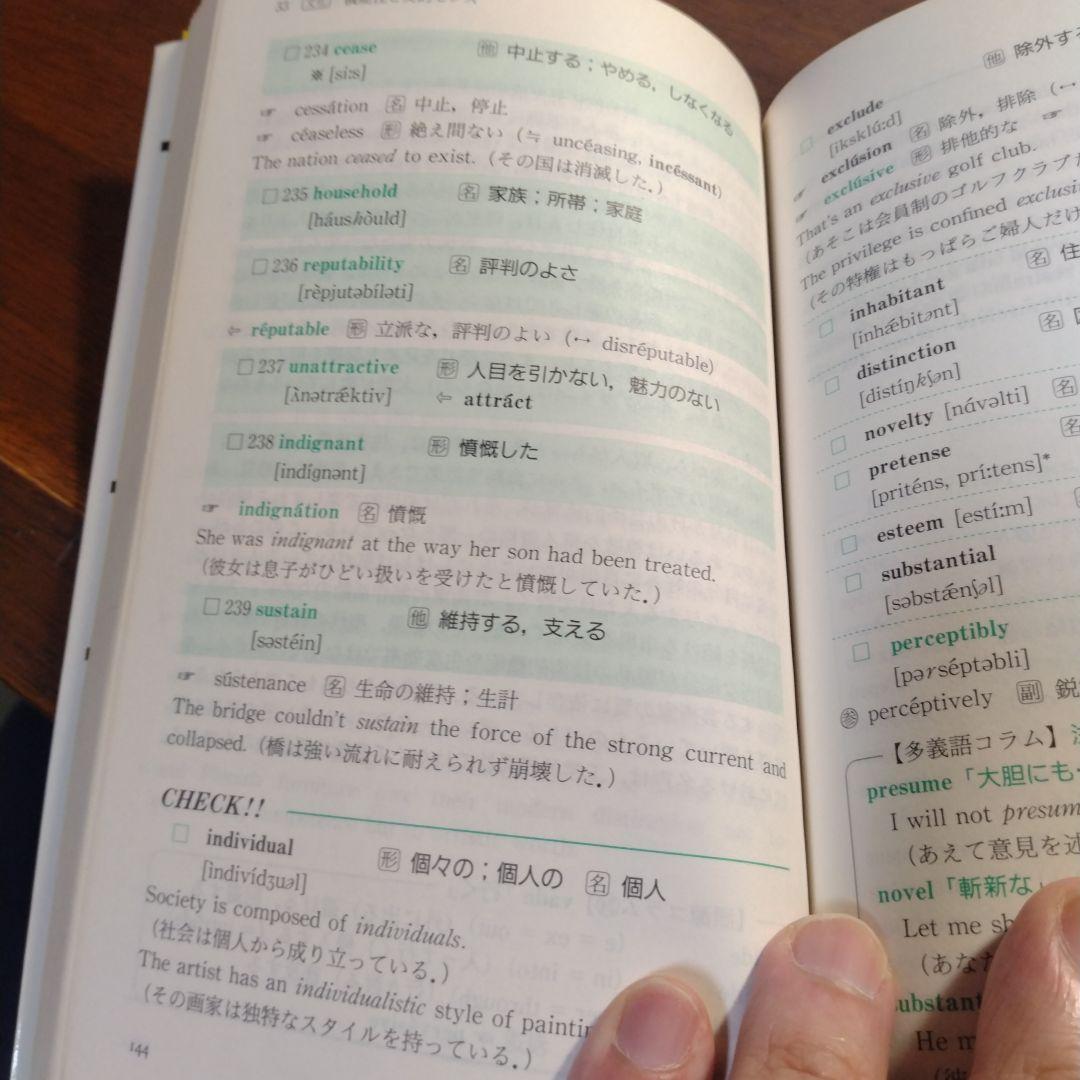 □ 234 cease 他 中止する；やめる，しなくなる
※ [si:s]
☞ cessátion 名 中止，停止
☞ céaseless 形 絶え間ない（≒ uncéasing, incéssant）
The nation ceased to exist.（その国は消滅した．）
□ 235 household 名 家族；所帯；家庭
[háushòuld]
□ 236 reputability 名 評判のよさ
[rèpjutəbíləti]
⇦ réputable 形 立派な，評判のよい（↔ disréputable）
□ 237 unattractive 形 人目を引かない，魅力のない
[ʌ̀nətrǽktiv] ⇦ attráct
□ 238 indignant 形 憤慨した
[indígnənt]
☞ indignátion 名 憤慨
She was indignant at the way her son had been treated.
（彼女は息子がひどい扱いを受けたと憤慨していた．）
□ 239 sustain 他 維持する，支える
[səstéin]
☞ sústenance 名 生命の維持；生計
The bridge couldn't sustain the force of the strong current and
collapsed.（橋は強い流れに耐えられず崩壊した．）
CHECK!!
□ individual 形 個々の；個人の 名 個人
[ìndivídʒuəl]
Society is composed of individuals.
（社会は個人から成り立っている．）
The artist has an individualistic style of
（その画家は独特なスタイルを持っている．）
144
他
□ exclude
[iksklú:d]
☞ exclúsion 名 除外，排除（↔
☞ exclúsive 形 排他的な ☞
That's an exclusive golf club.
（あそこは会員制のゴルフクラブ
The privilege is confined
（その特権はもっぱらご婦人だけ
□ inhabitant 名 住
[inhǽbitənt]
□ distinction 名
[distíŋkʃən]
□ novelty [návəlti] 名
□ pretense
[priténs, prí:tens]*
□ esteem [estí:m]
□ substantial
[səbstǽnʃəl]
□ perceptibly
[pərséptəbli]
参 percéptively 副
【多義語コラム】
presume「大胆にも
I will not
（あえて意見を
novel「斬新な」
Let me
（あな
He